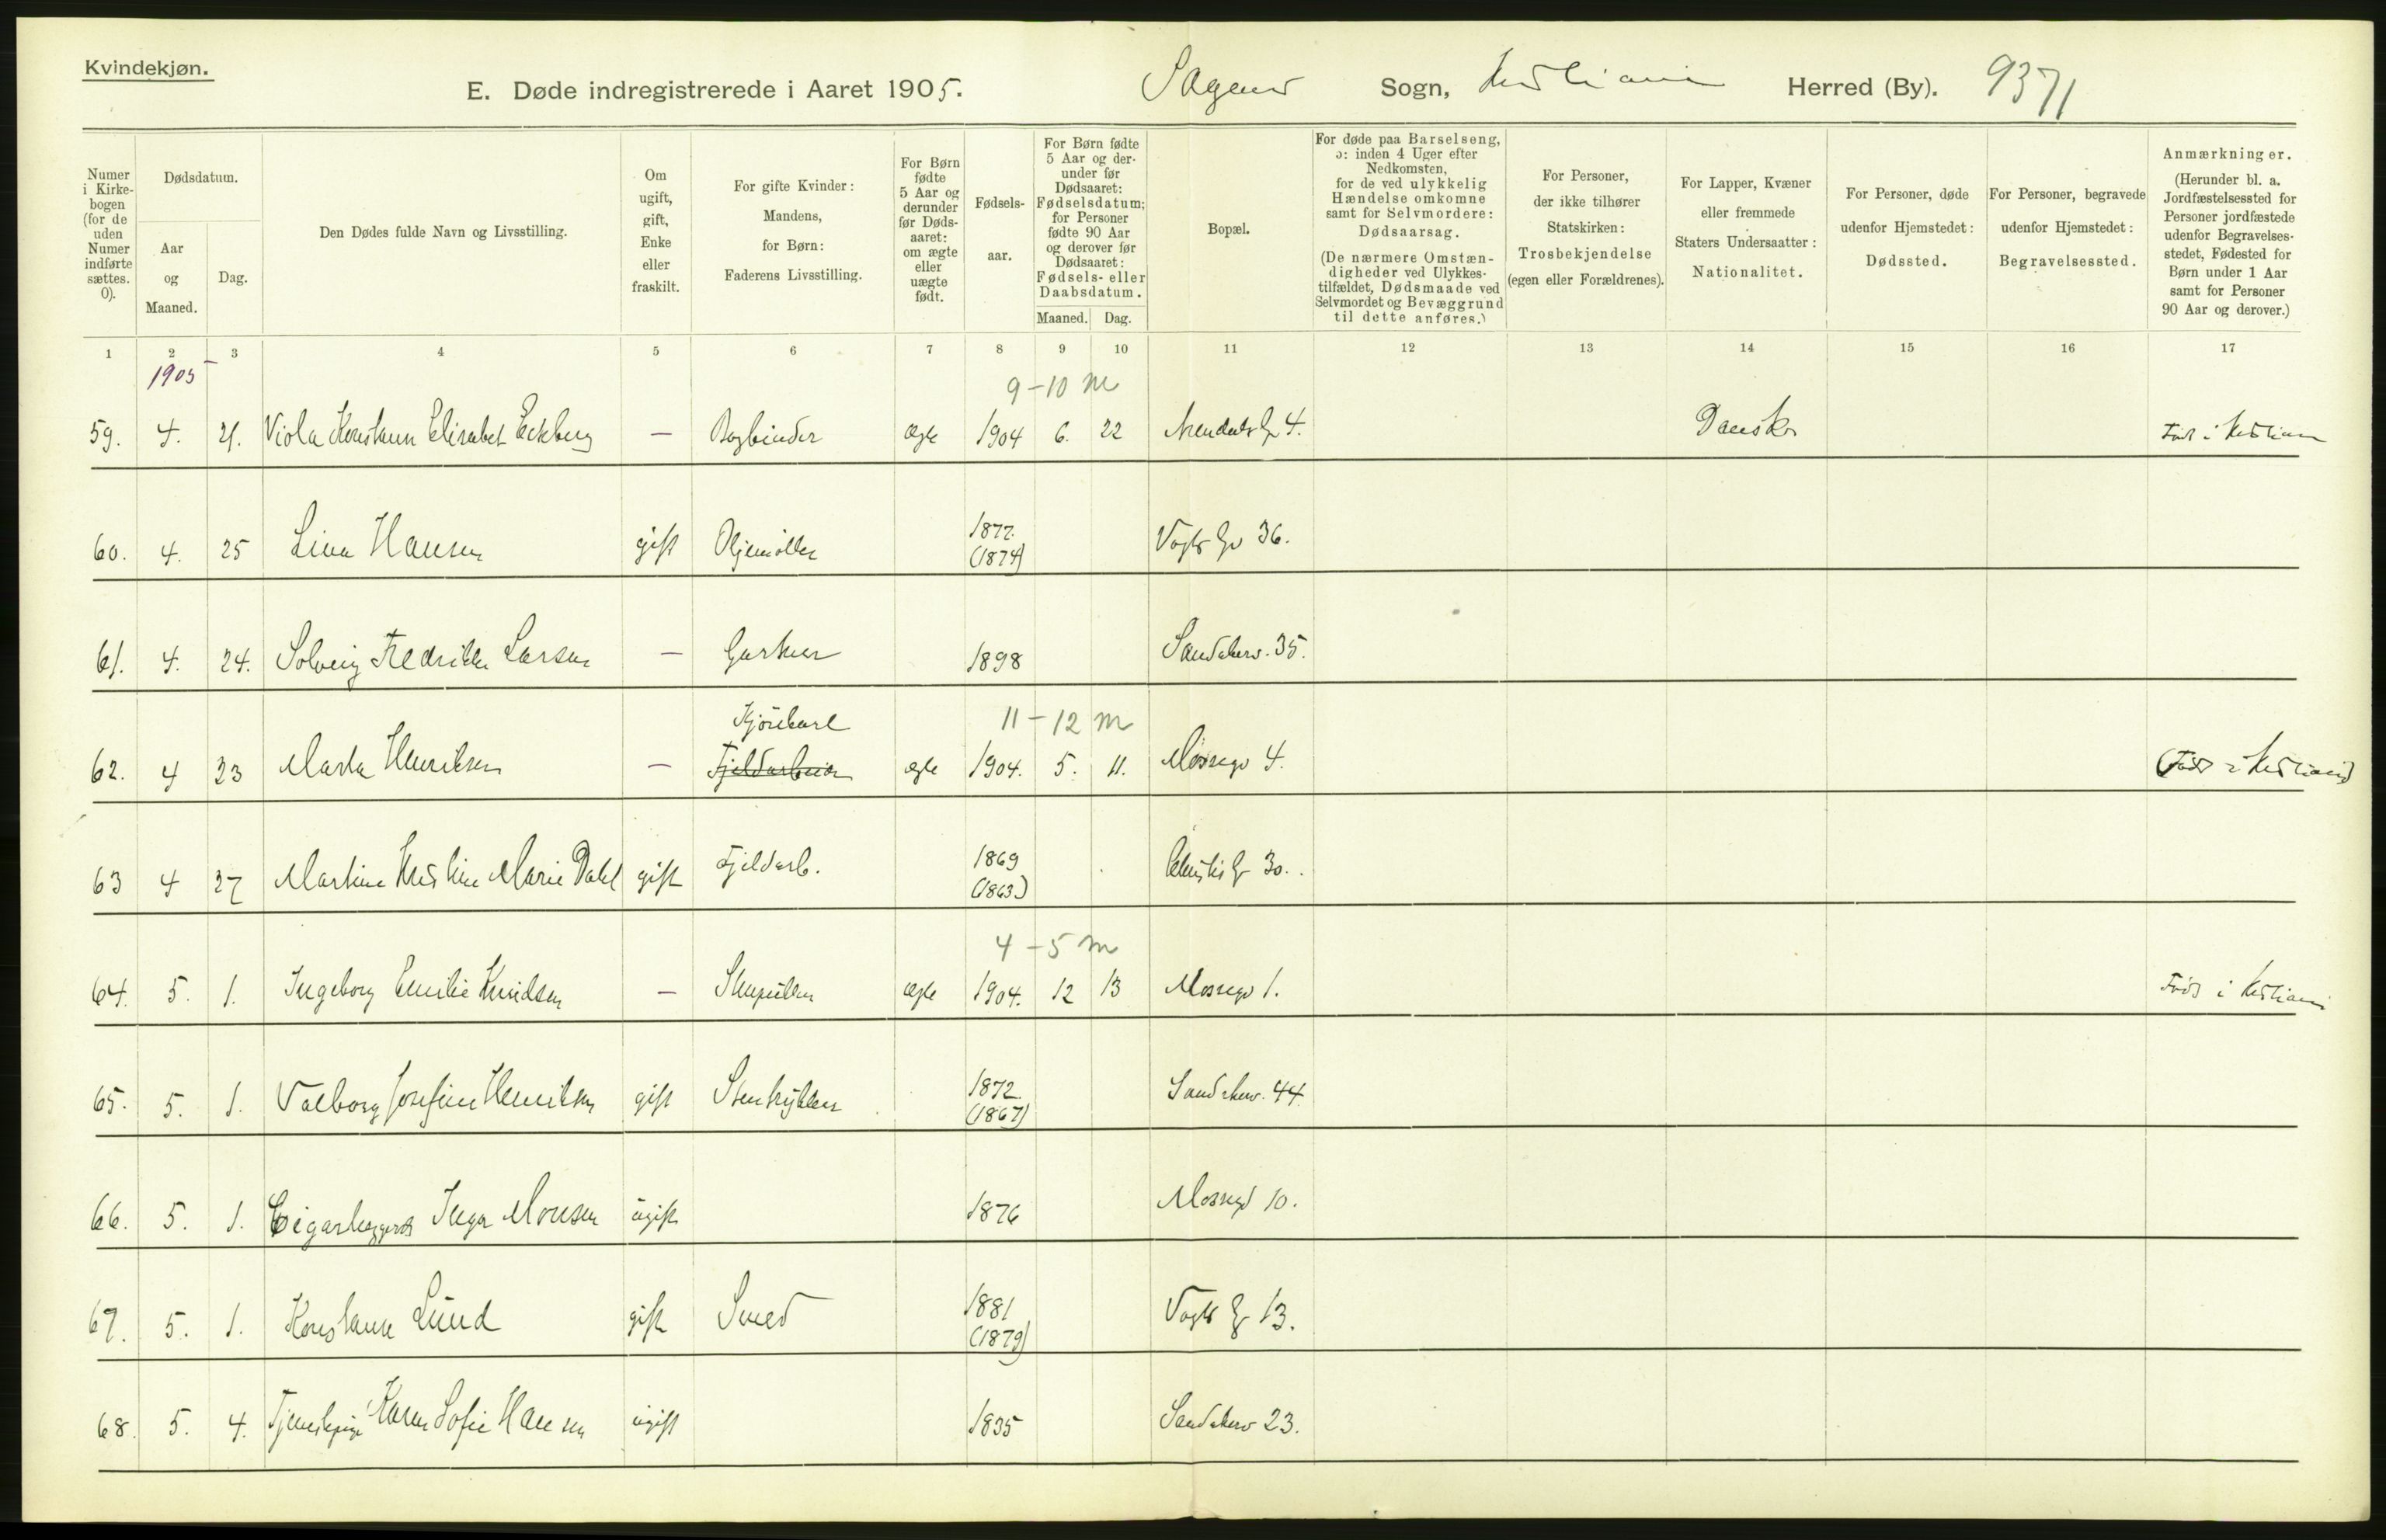 Kvindekjøn.
E. Døde indregistrerede i Aaret 1905. Sagens Sogn, Kristiania Herred (By). 9371
Numer i Kirkebogen (for de uden Numer indførte sættes. 0).
Dødsdatum.
Aar og Maaned.
Dag.
Den Dødes fulde Navn og Livsstilling.
Om ugift, gift, Enke eller fraskilt.
For gifte Kvinder: Mandens, for Børn: Faderens Livsstilling.
For Børn fødte 5 Aar og derunder før Dødsaaret: om ægte eller uægte født.
Fødselsaar.
For Børn fødte 5 Aar og derunder før Dødsaaret: Fødselsdatum; for Personer fødte 90 Aar og derover før Dødsaaret: Fødsels- eller Daabsdatum.
Maaned. Dag.
Bopæl.
For døde paa Barselseng, ɔ: inden 4 Uger efter Nedkomsten, for de ved ulykkelig Hændelse omkomne samt for Selvmordere: Dødsaarsag.
(De nærmere Omstændigheder ved Ulykkestilfældet, Dødsmaade ved Selvmordet og Bevæggrund til dette anføres.)
For Personer, der ikke tilhører Statskirken: Trosbekjendelse (egen eller Forældrenes).
For Lapper, Kvæner eller fremmede Staters Undersaatter: Nationalitet.
For Personer, døde udenfor Hjemstedet: Dødssted.
For Personer, begravede udenfor Hjemstedet: Begravelsessted.
Anmærkninger.
(Herunder bl. a. Jordfæstelsessted for Personer jordfæstede udenfor Begravelsesstedet, Fødested for Børn under 1 Aar samt for Personer 90 Aar og derover.)
1 2 3 4 5 6 7 8 9 10 11 12 13 14 15 16 17
1905
9-10 m
59. 4. 21. Viola Konstanse Elisabet Eckberg — Bogbinder ægte 1904 6. 22 Arendals g 4. Dansk Født i Kristiania
60. 4. 25 Lina Hansen gift Oljemøller 1877. (1874) Vogts gd 36.
61. 4. 24. Solveig Fredrikke Larsen — Gartner 1898 Sandakerv. 35.
Kjørekarl 11-12 m
62. 4 23 Marta Henriksen — Fjeldarbeider ægte 1904. 5. 11. Mossegd 4. (Født i Kristiania)
63 4 27 Martine Kristine Marie Dahl gift Fjeldarb. 1869 (1863) 30.
4-5 m
64. 5. 1. Ingeborg Emilie Knudsen — ægte 1904. 12 13 Mossegd 1. Født i Kristiania
65. 5. 1. Valborg Josefine Henriksen gift Stenhugger 1872. (1867) Sandakerv. 44.
66. 5. 1. Inga Monsen ugift 1876 Mossegd 10.
67. 5. 1. Konstanse Lund gift Smed 1881 (1879) Vogts g 13.
68. 5. 4. Tjenestepige Karen Sofie Hansen ugift 1835 Sandakerv 23.